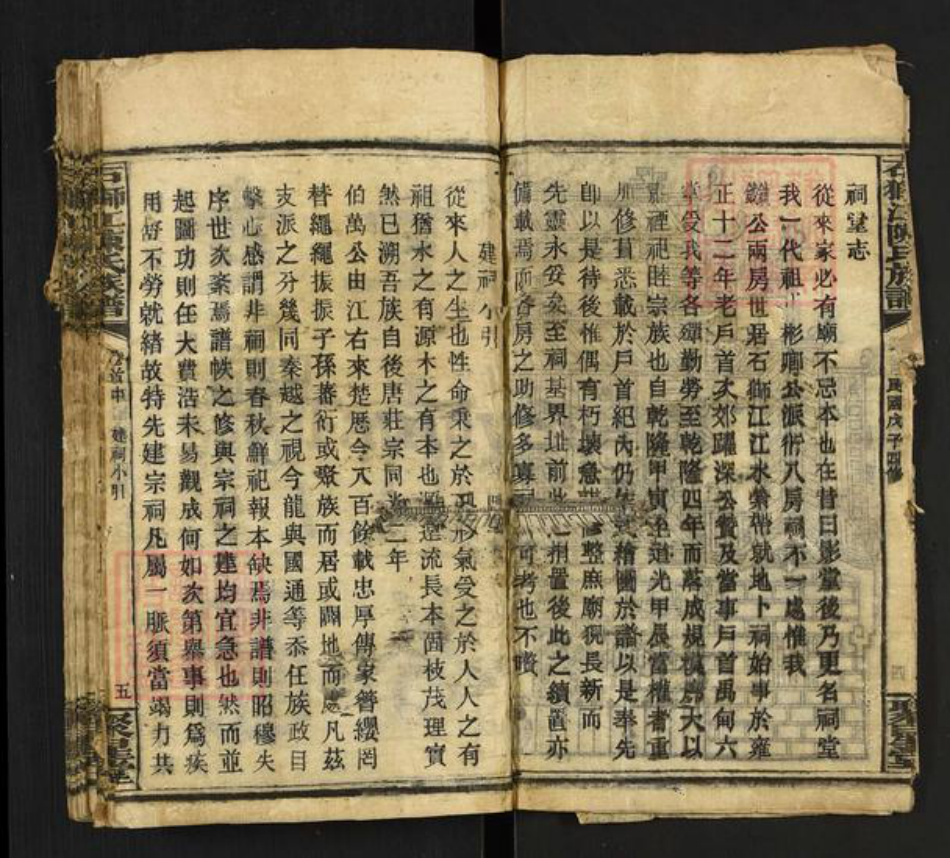 祠堂志
從來家必有廟不忘本也在昔曰影堂後乃更名祠堂
我一代祖 彬卿公派衍八房祠不一處惟我
公兩房世居石獅江江水縈帶就地卜祠始事於雍
正十二年老戶首次郊躍深公贊及當事戶首禹甸六
掌受我等各殫勤勞至乾隆四年而落成規模廓大以
禋祀睦宗族也自乾隆甲寅至道光甲辰當權者重
加修葺悉載於戶首紀內仍 繪圖於譜以是奉先
即以是待後惟偶有朽壞急 修整庶廟貌長新而
先靈永妥矣至祠基界址前 置後此之續置亦
備載焉而各房之助修多寡 可考也不贅
建祠小引
從來人之生也性命秉之於 形氣受之於人人之有
祖猶水之有源木之有本也源遠流長本固枝茂理實
然已溯吾族自後唐莊宗同光二年
伯萬公由江右來楚歷今八百餘載忠厚傳家簪纓罔
替繩繩振振子孫蕃衍或聚族而居或闢地而處凡茲
支派之分幾同秦越之視今龍與國通等忝任族政目
擊心感謂非祠則春秋鮮祀報本缺焉非譜則昭穆失
序世次紊焉譜帙之修與宗祠之建均宜急也然而並
起圖功則任大費浩未易觀成何如次第舉事則為疾
用舒不勞就緒故特先建宗祠凡屬一脈須當竭力共
石獅江陳氏族譜
卷首中
建祠小引
五
聚星堂
民國戊子四修
四